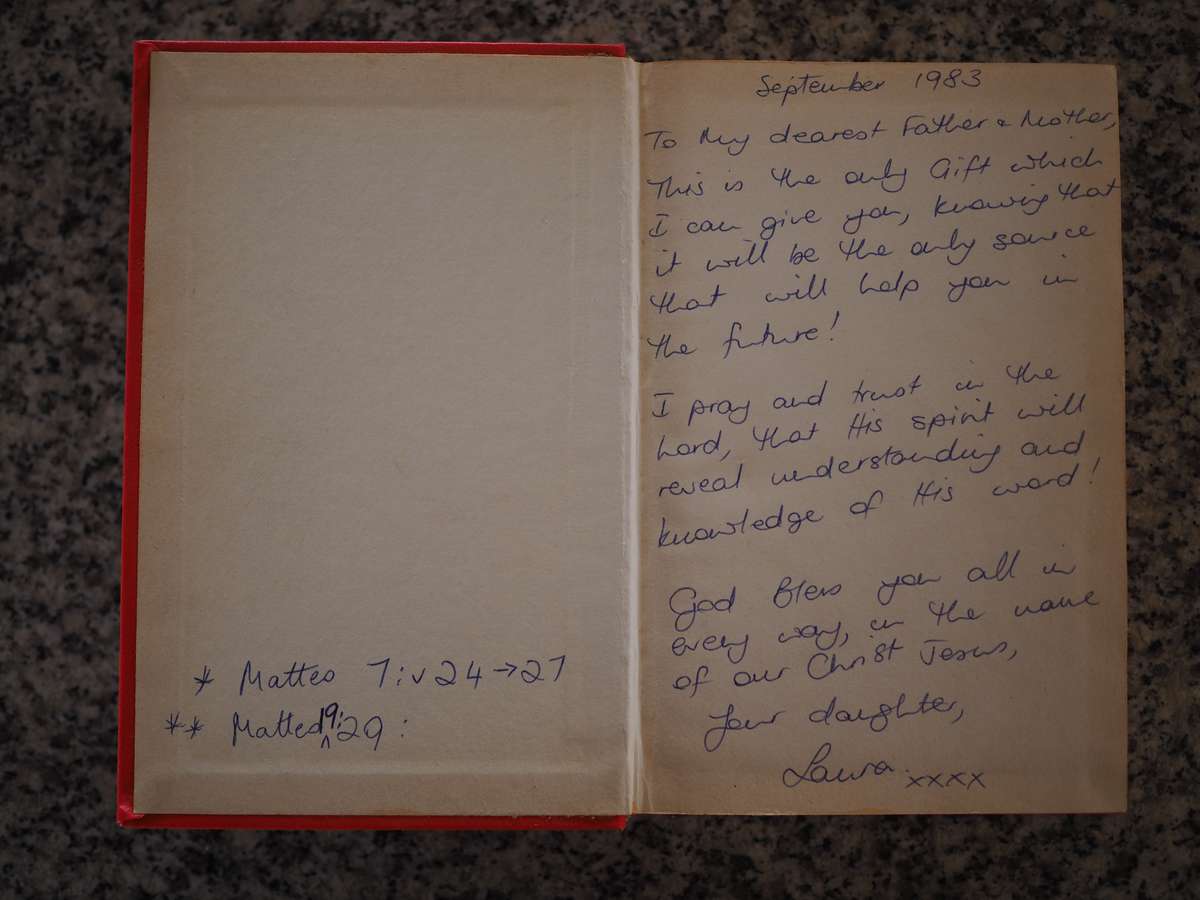 * Matteo 7:v 24→27
** Matteo 19:29 :
September 1983
To My dearest Father & Mother,
This is the only Gift which
I can give you, knowing that
it will be the only source
that will help you in
the future!
I pray and trust in the
Lord, that His spirit will
reveal understanding and
knowledge of His word!
God Bless you all in
every way, in the name
of our Christ Jesus,
Your daughter,
Laura xxxx